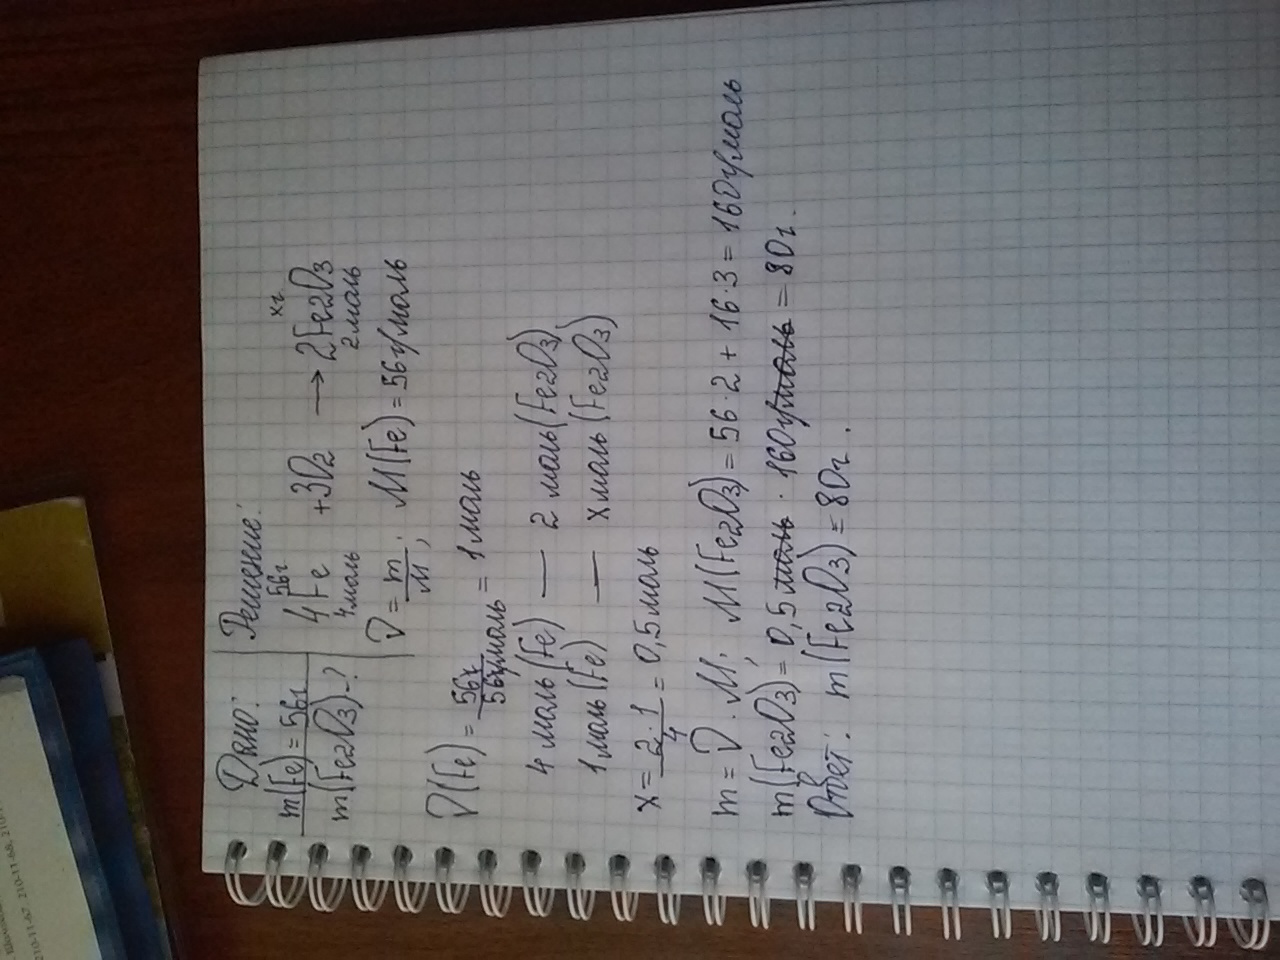 Дано:
m(Fe) = 56г
m(Fe2O3)-?
Решение:
56г хг
4Fe +3O2 → 2Fe2O3
4моль 2моль
ν = m/M; M(Fe) = 56г/моль
ν(Fe) = 56г/56г/моль = 1моль
4 моль (Fe) — 2 моль (Fe2O3)
1моль (Fe) — х моль (Fe2O3)
x = 2·1/4 = 0,5 моль
m = ν · M; M(Fe2O3) = 56·2 + 16·3 = 160г/моль
m(Fe2O3) = 0,5 моль · 160г/моль = 80г.
Ответ: m(Fe2O3) = 80г.
210-11-67, 210-11-68, 210-